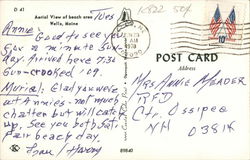 D 41
Aerial View of beach area
Wells, Maine
Wed
Annie: Good to see you
for a minute Sun-
day. Arrived here 7:30
Gun-crooked '09.
Muriel: Glad you were
at Annies - not much
chatter but will catch
up. See you both Sat.
Fair beach day
/ Harry
K
POST CARD
Address
1973
10¢
Mrs Annie Meader
RFD
Ctr. Ossipee
NH 03814